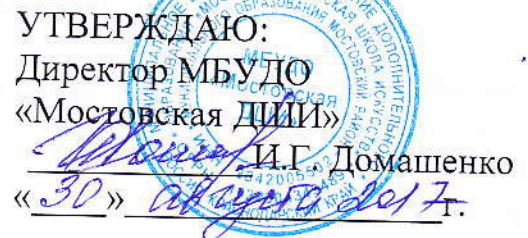 УТВЕРЖДАЮ:
Директор МБУДО
«Мостовская ДШИ»
И.Г. Домашенко
«30» августа 2017г.
МБУДО
«Мостовская